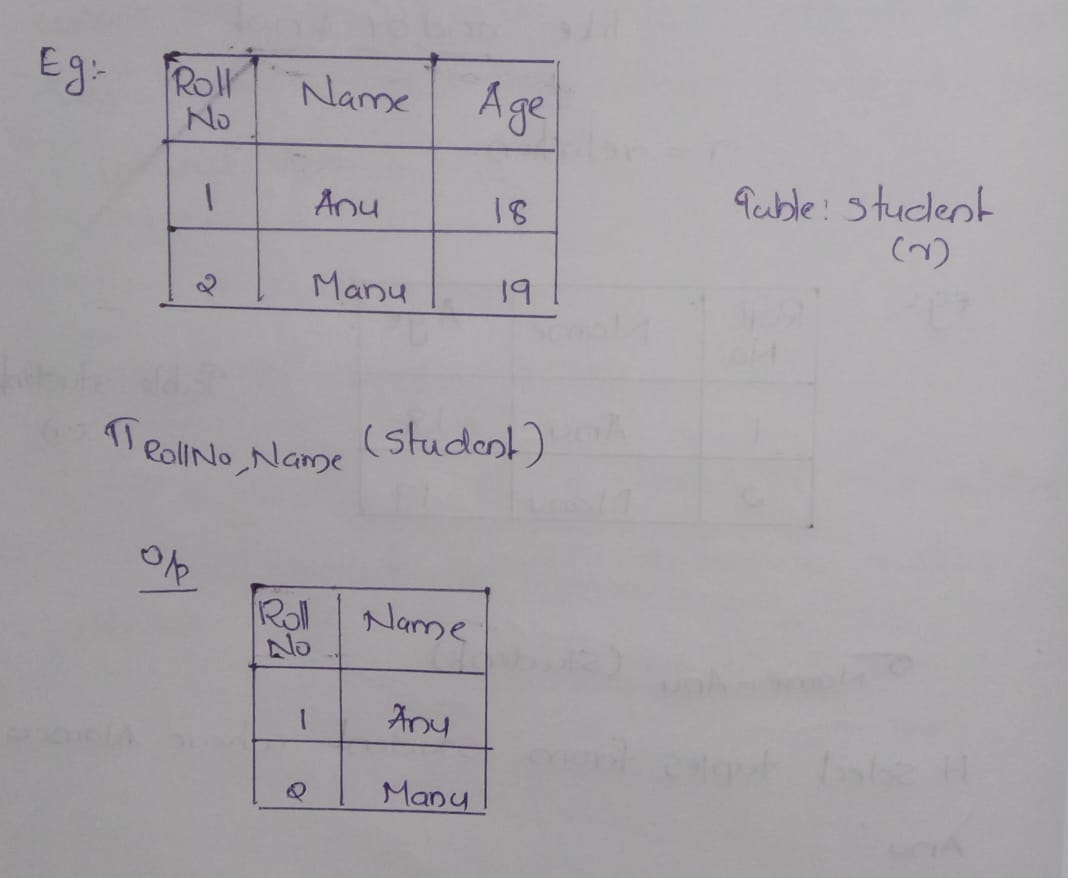 Eg:-
Roll No Name Age
1 Anu 18
2 Manu 19
Table: student
(r)
π RollNo, Name (Student)
O/p
Roll No Name
1 Anu
2 Manu